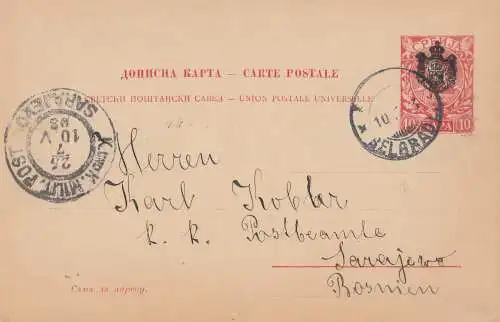 СРБИЈА
ДОПИСНА КАРТА — CARTE POSTALE
СВЕТСКИ ПОШТАНСКИ САВЕЗ — UNION POSTALE UNIVERSELLE
10 10
10
BELGRAD
K.UND K. MILIT. POST
SARAJEVO
25
7
10 V
03
Herren
Karl Kobler
k. k. Postbeamte
Sarajewo
Bosnien
Само за адресу.